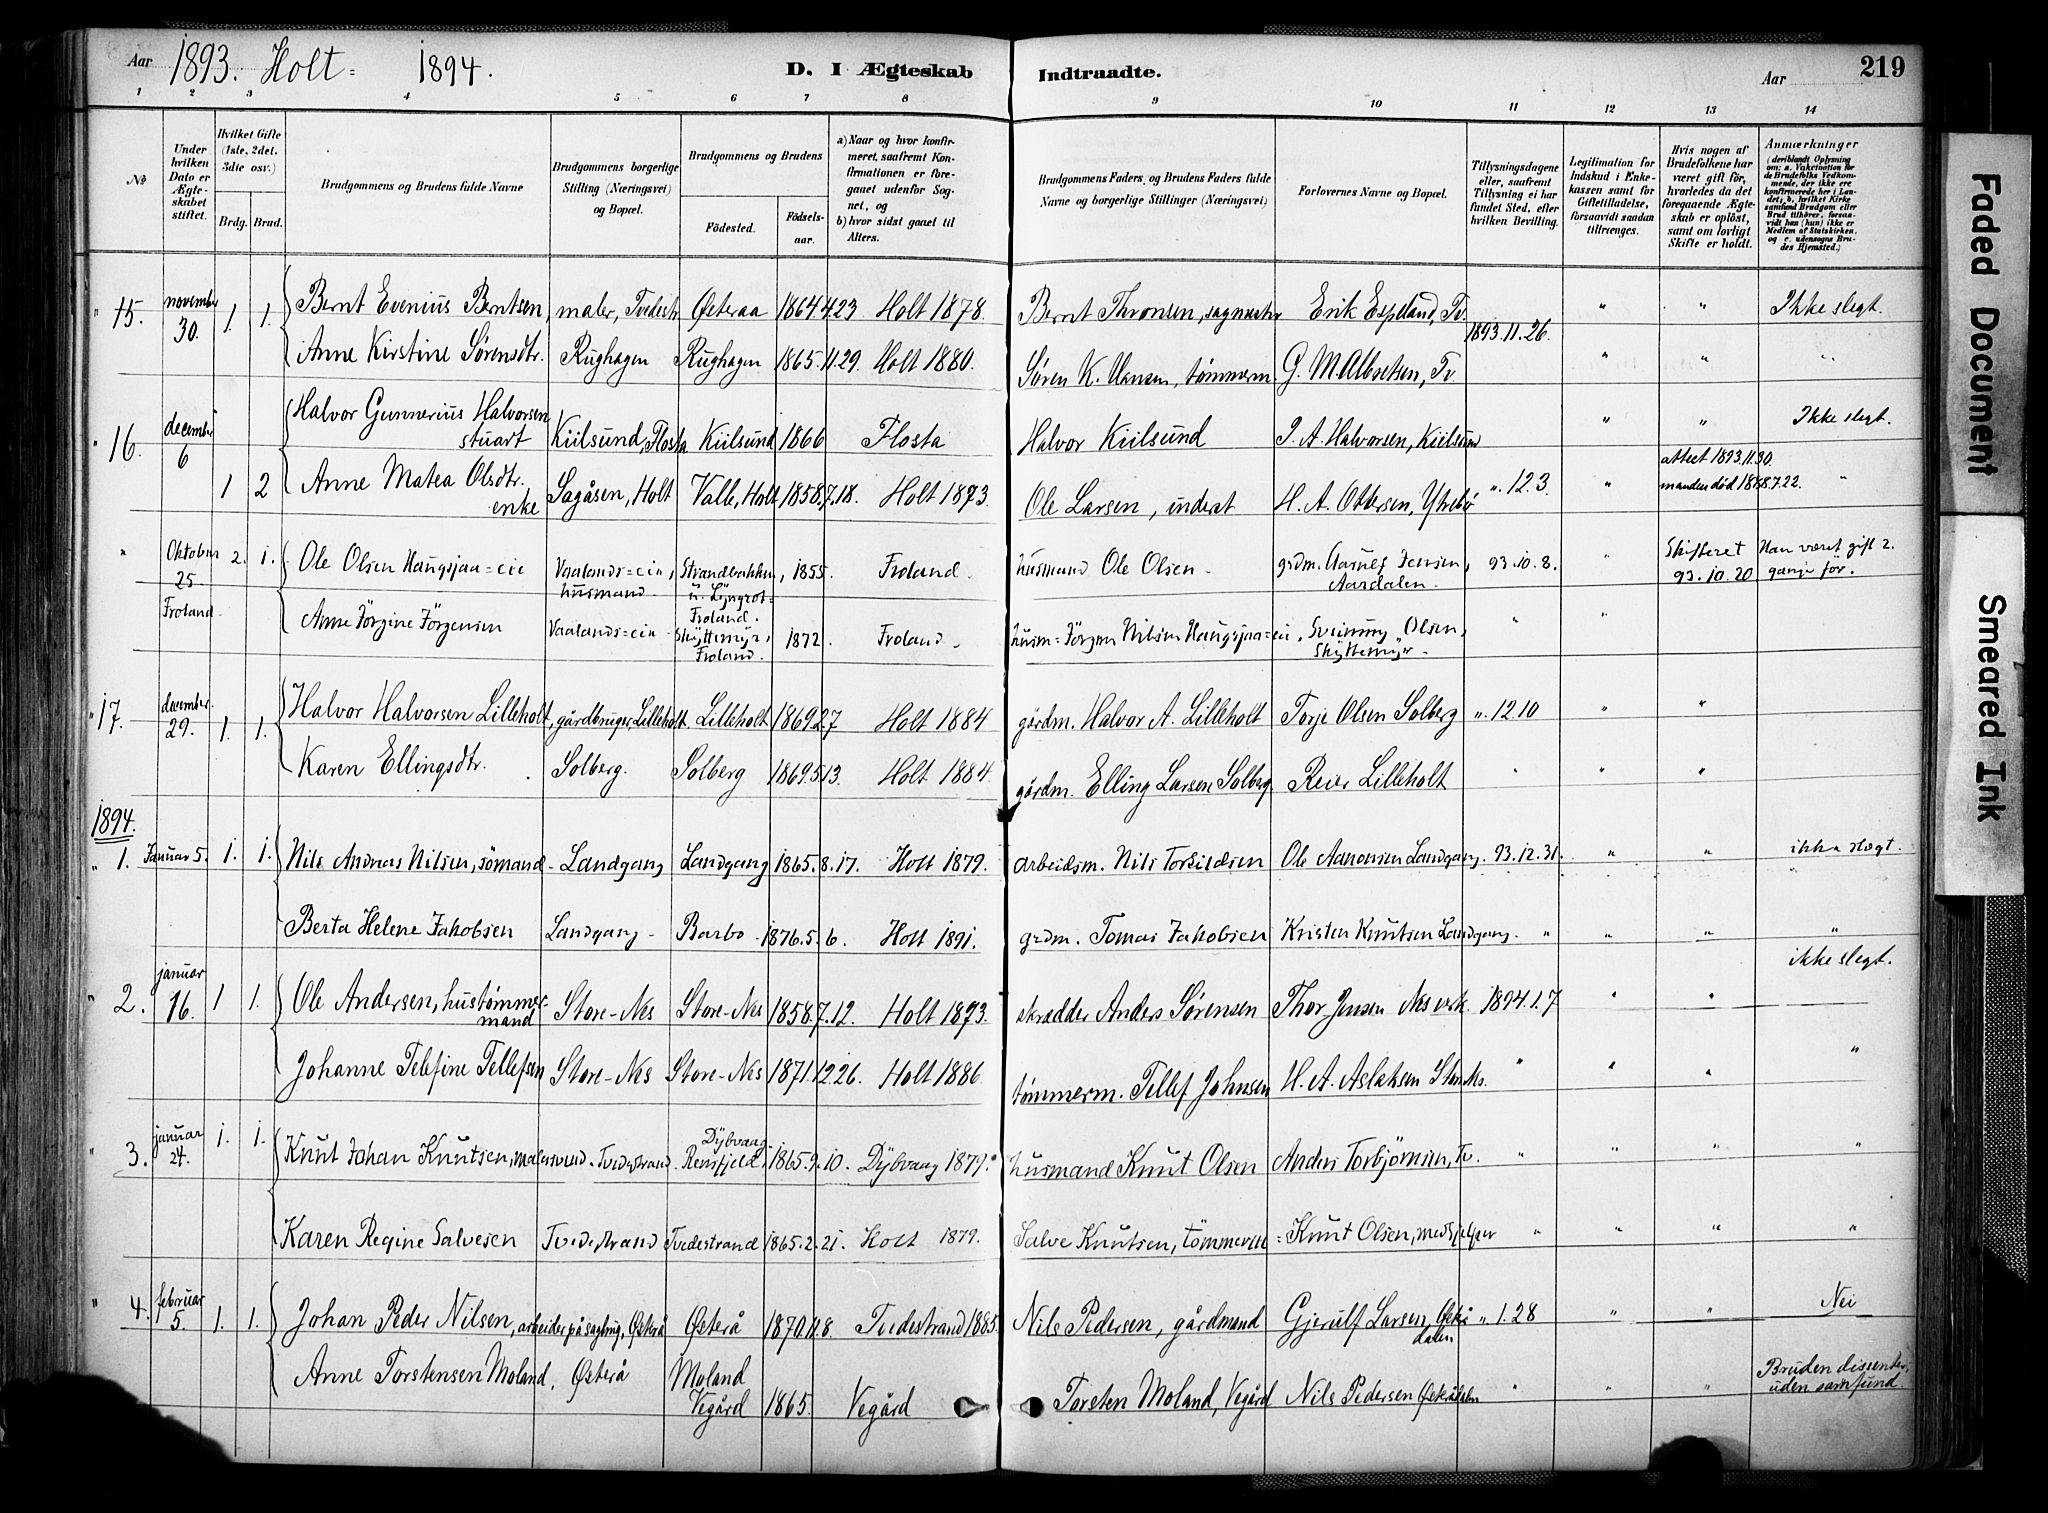 Aar 1893. Holt = 1894. D. I Ægteskab Indtraadte. Aar 219
1 2 3 4 5 6 7 8 9 10 11 12 13 14
No
Under hvilken Dato er Ægteskabet stiftet.
Hvilket Gifte (1ste, 2det, 3die osv.)
Brdg. Brud.
Brudgommens og Brudens fulde Navne
Brudgommens borgerlige Stilling (Næringsvei) og Bopæl.
Brudgommens og Brudens
Fødested. Fødselsaar.
a) Naar og hvor konfirmeret, saafremt Konfirmationen er foregaaet udenfor Sognet, og
b) hvor sidst gaaet til Alters.
Brudgommens Faders og Brudens Faders fulde Navne og borgerlige Stillinger (Næringsvei)
Forlovernes Navne og Bopæl.
Tillysningsdagene eller, saafremt Tillysning ei har fundet Sted, efter hvilken Bevilling.
Legitimation for Indskud i Enkekassen samt for Giftetilladelse, forsaavidt saadan tiltrænges.
Hvis nogen af Brudefolkene har været gift før, hvorledes da det foregaaende Ægteskab er opløst, samt om lovligt Skifte er holdt.
Anmærkninger
(deriblandt Oplysning om: a. Vakcination for de Brudefolks Vedkommende, der ikke ere konfirmerede her i Landet; b. hvilket Kirkesamfund Brudgom eller Brud tilhører, forsaavidt han (hun) ikke er Medlem af Statskirken, og c. udensogns Brudes Hjemsted.)
" 15. november 30. 1. 1. Bernt Evenius Berntsen, maler, Tvedestr. Østeraa 1864.4.23 Holt 1878. Bernt Thronsen, sagmester Erik Espeland, Tv. 1893.11.26. " " Ikke slegt.
Anne Kirstine Sørensdtr. Rughagen Rughagen 1865.11.29. Holt 1880. Søren K. Hansen, tømmerm. G. M. Albretsen, Tv " " "
" 16. december 6 Halvor Gunnerius Halvorsen stuart Kiilsund, Flosta Kiilsund 1866 Flosta Halvor Kiilsund P. A. Halvorsen, Kiilsund " " Ikke slegt.
1 2 Anne Matea Olsdtr. enke Sagåsen, Holt Valle, Holt 1858.7.18. Holt 1873. Ole Larsen, inderst H. A. Ottersen, Ytrebø ". 12.3. " attest 1893.11.30. manden død 1888.7.22. "
" Oktober 25 Froland 2. 1. Ole Olsen Haugsjaa=eie Vaalands=eie, husmand. Strandbakken, u. Lyngrot= Froland. 1855. Froland. husmand Ole Olsen - grdm. Aanulf Jensen, Aardalen. 93.10.8. " Skifteret 93.10.20 Han været gift 2. gange før.
Anne Jörgine Jörgensen Vaalands=eie - Skyttemyr, Froland. 1872. Froland. husm= Jörgen Nilsen Haugsjaa=eie, Sveinung Olsen, Skyttemyr. " "
" 17. december 29. 1. 1. Halvor Halvorsen Lilleholt, gårdbruger, Lilleholt. Lilleholt 1869.2.7 Holt 1884 gårdm. Halvor A. Lilleholt Torje Olsen Solberg ". 12.10 " "
Karen Ellingsdtr. Solberg. Solberg 1869.5.13. Holt 1884. gårdm. Elling Larsen Solberg Reier Lilleholt " " "
1894.
" 1. Januar 5. 1. 1. Nils Andreas Nilsen, sömand - Landgang Landgang 1865.8.17. Holt 1879. arbeidsm. Nils Torkildsen Ole Aanonsen Landgang. 93.12.31. " " ikke slægt.
Berta Helene Jakobsen Landgang - Barbo - 1876.5.6. Holt 1891. grdm. Tomas Jakobsen Kristen Knutsen Landgang. " " " "
" 2. januar 16. 1 1. Ole Andersen, hustømmermand Store-Nes Store-Nes 1858.7.12. Holt 1873. skrædder Anders Sørensen Thor Jensen Nes verk. 1894.1.7 " " ikke slegt.
Johanne Telefine Tellefsen Store-Nes Store-Nes 1871.12.26. Holt 1886. tømmerm. Tellef Johnsen H. A. Aslaksen Stor Nes. " " " "
" 3. januar 24. 1. 1. Knut Johan Knutsen, malersvend. Tvedestrand. Dybvaag Remsfjeld, 1865.9.10. Dybvaag 1879. husmand Knut Olsen Anders Torbjörnsen, Tv. " " " "
Karen Regine Salvesen Tvedestrand Tvedestrand 1865.2.21. Holt 1879. Salve Knutsen, tömmerm = Knut Olsen, medhjelper " " " "
" 4. februar 5. 1. 1. Johan Peder Nilsen, arbeider på sagbrug, Østerå Østerå 1870.11.8. Tvedestrand 1885. Nils Pedersen, gårdmand Gjerulf Larsen, Østeådalen ". 1.28 " " Nei
Anne Torstensen Moland, Østerå Moland Vegård 1865. Vegård Torsten Moland, Vegård Nils Pedersen Østerådalen " " " Bruden dissenter, uden samfund.
Faded Document
Smeared Ink